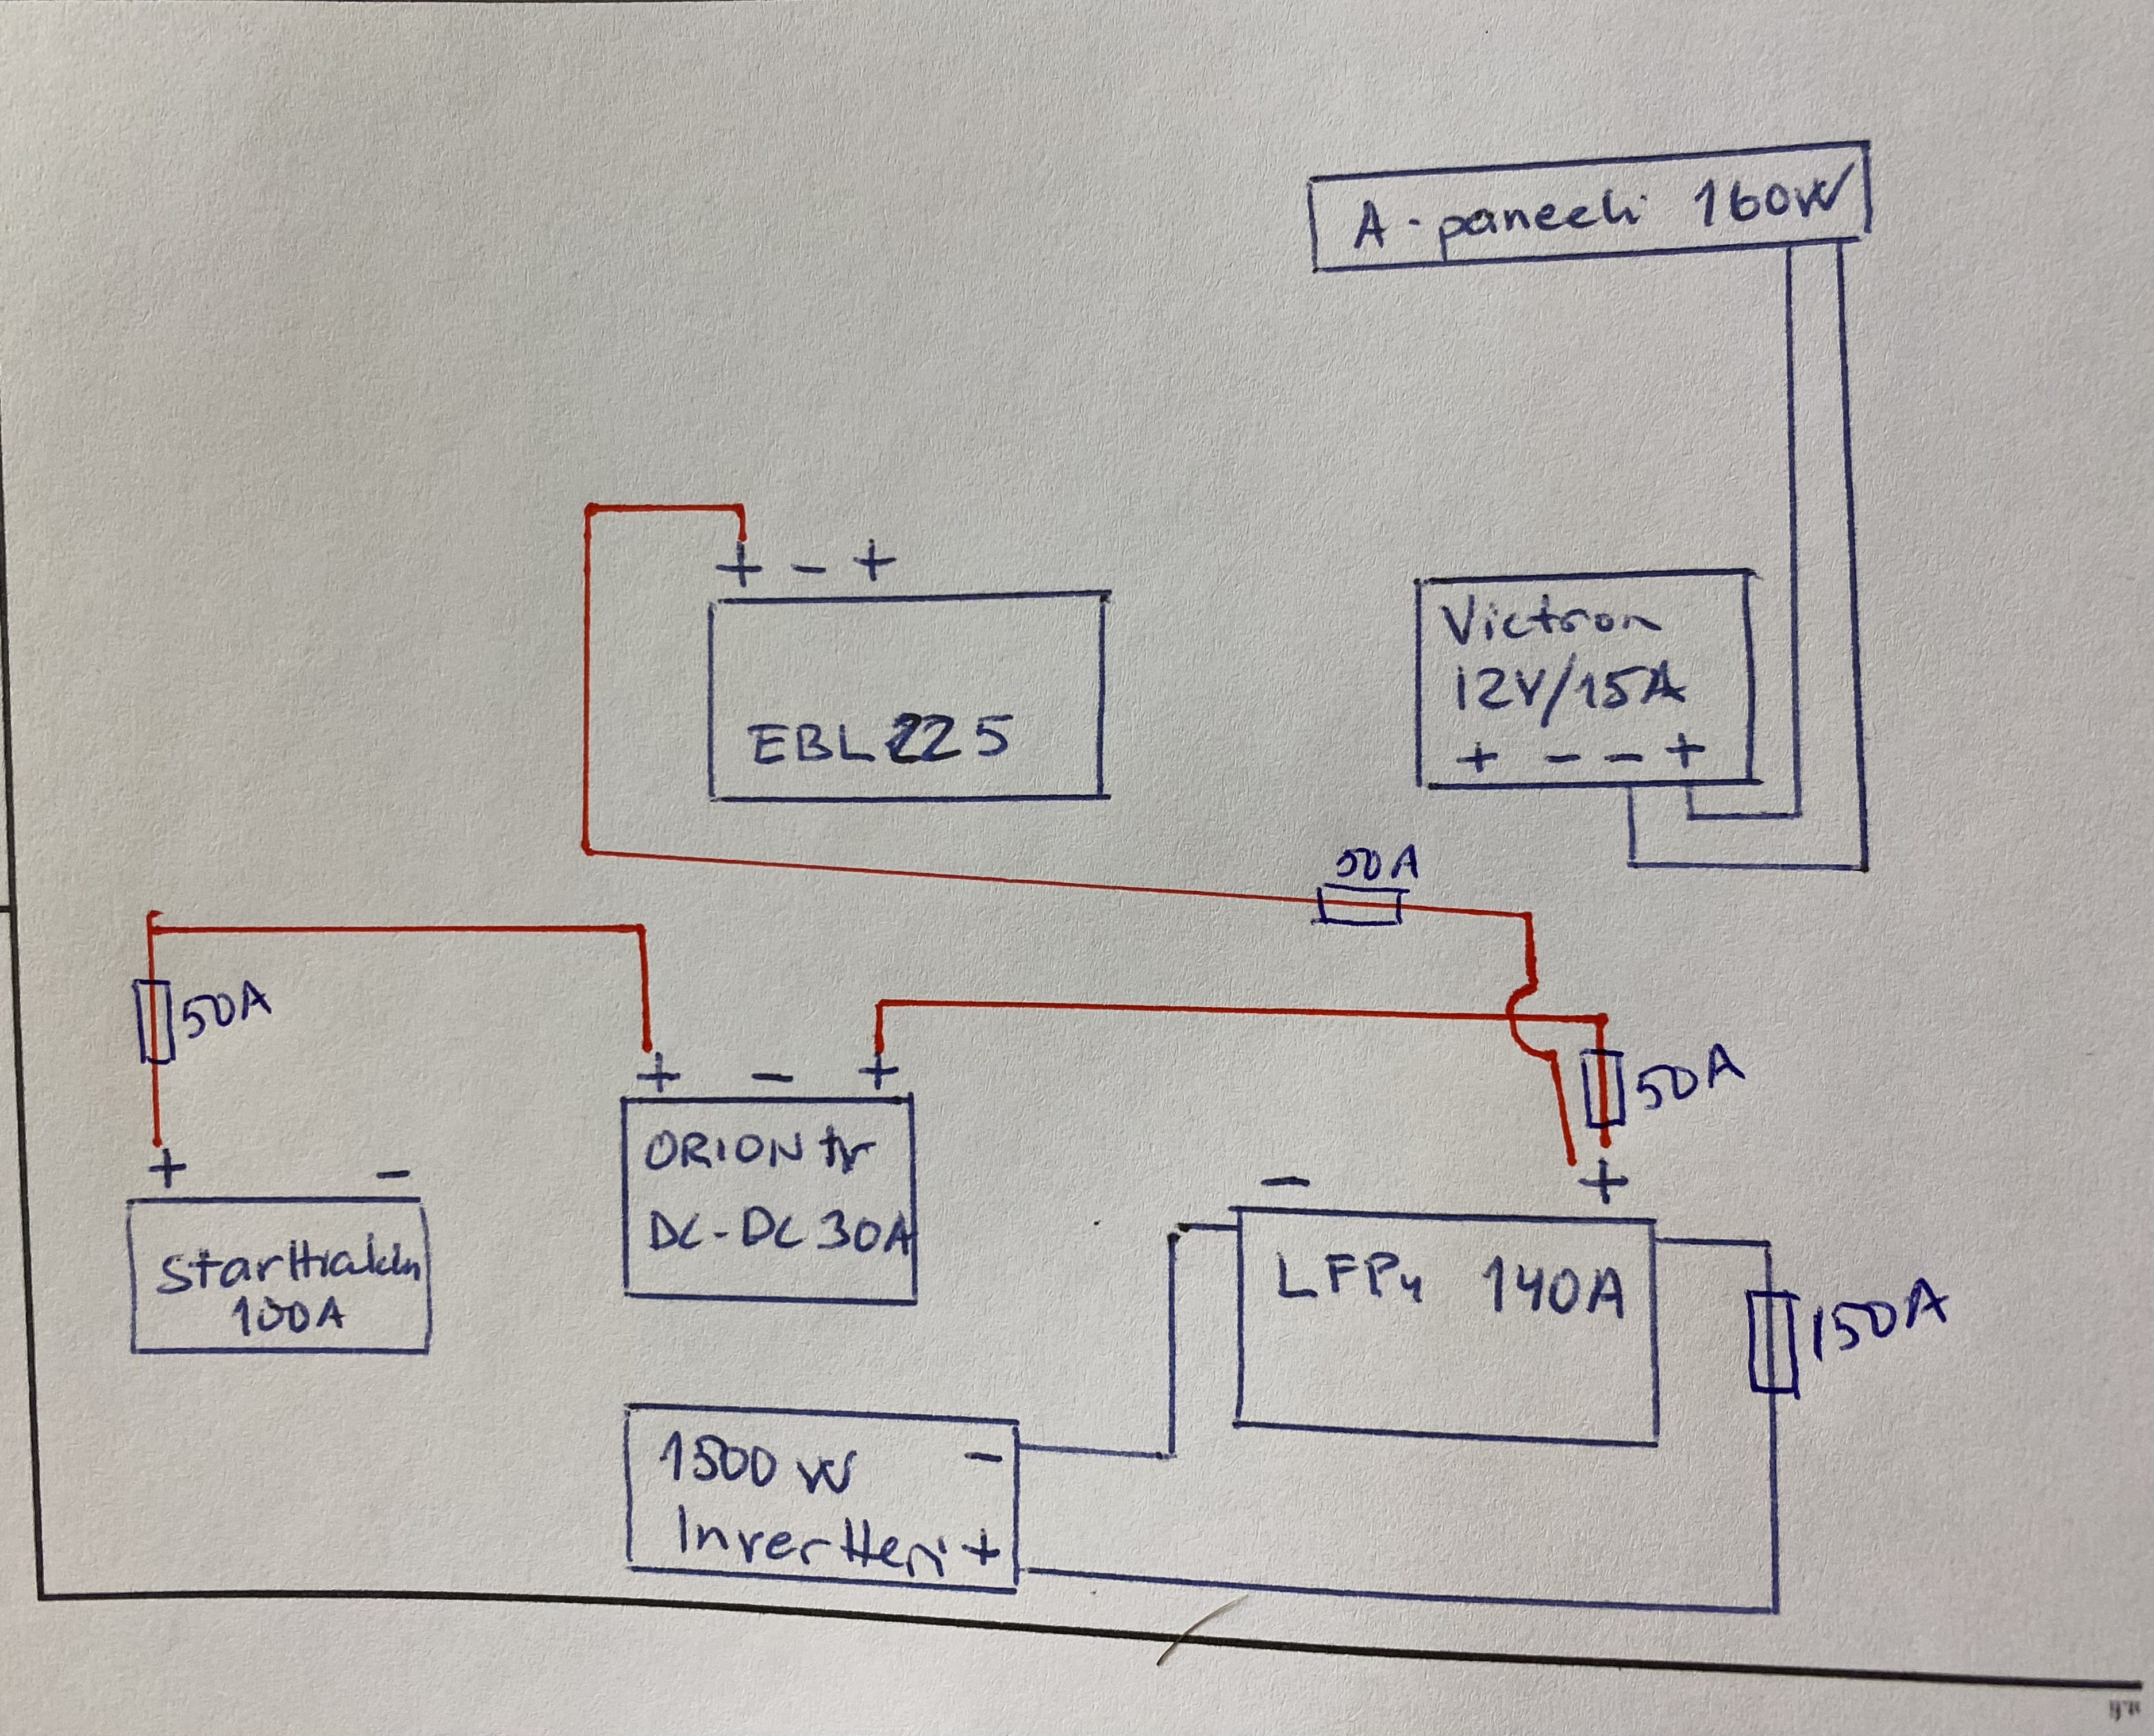 A-paneeli 160W
+ - +
EBL 225
Victron
12V/15A
+ - - +
50A
50A
+ - +
ORION tr
DC-DC 30A
50A
+ -
Starttiakku
100A
- +
LFP4 140A
150A
1500W -
Invertteri +